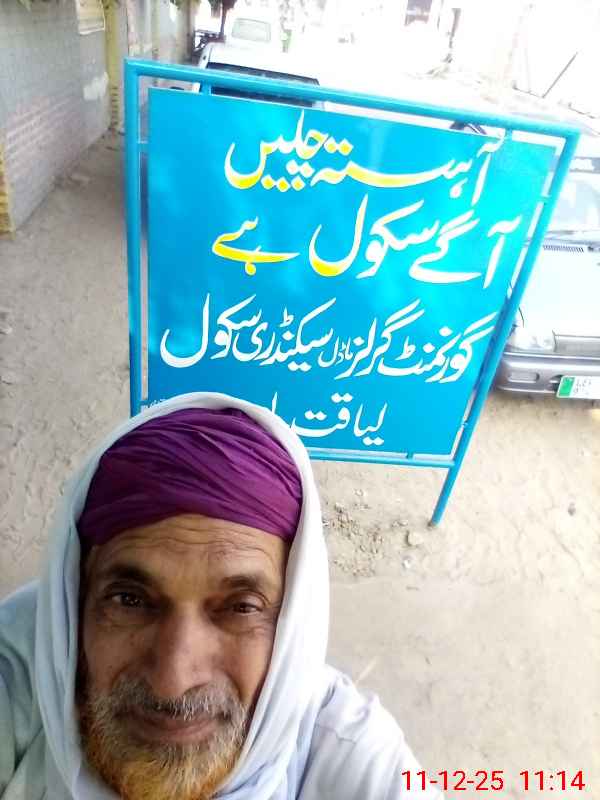 آہستہ چلیں
آگے سکول ہے
گورنمنٹ گرلز ماڈل سیکنڈری سکول
لیاقت
11-12-25 11:14